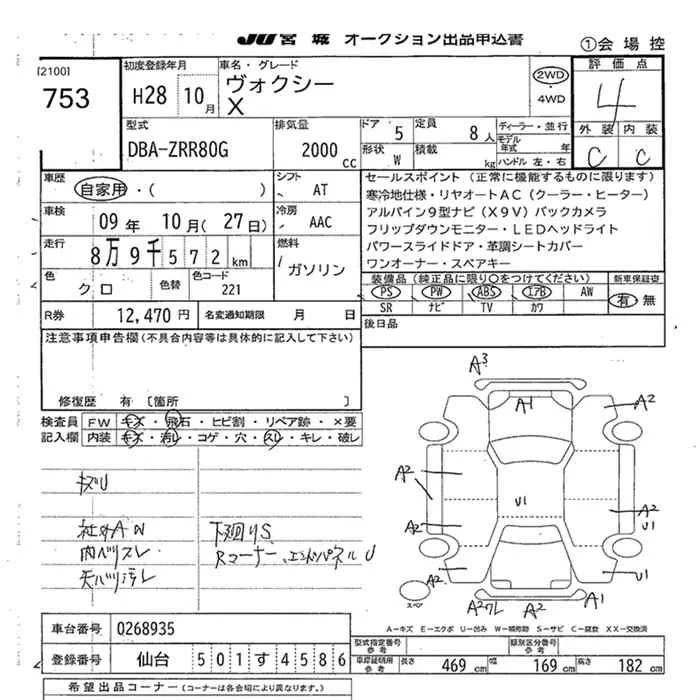 JU 宮城 オークション出品申込書
①会場控
[2100]
753
初度登録年月
H28 10月
車名・グレード
ヴォクシー
X
2WD
・4WD
評価点
4
外装 内装
C C
型式
DBA-ZRR80G
排気量
2000cc
ドア 5
形状 W
定員 8人
積載 kg
ディーラー・並行
モデル年式 年
ハンドル 左・右
車歴 自家用・( )
シフト AT
車検 09年 10月(27日)
冷房 AAC
走行 8万9千572km
燃料 ガソリン
色 クロ
色替
色コード 221
R券 12,470円
名変通知期限 月 日
セールスポイント(正常に機能するものに限ります)
寒冷地仕様・リヤオートAC(クーラー・ヒーター)
アルパイン9型ナビ(X9V)バックカメラ
フリップダウンモニター・LEDヘッドライト
パワースライドドア・革調シートカバー
ワンオーナー・スペアキー
装備品(純正品に限り○をつけてください)
新車保証書
PS PW ABS エアB AW
SR ナビ TV カワ
有・無
後日品
注意事項申告欄(不具合内容等は具体的に記入して下さい)
修復歴 有 〔箇所 〕
検査員記入欄
FW キズ・飛石・ヒビ割・リペア跡・×要
内装 キズ・汚レ・コゲ・穴・スレ・キレ・破レ
キズU
社外AW
内ハツスレ
天ハツ汚レ
下廻りS
Rコーナー、エンドパネルU
A3
A1
A2
A2
A2
U1
A2
U1
A2
U1
A2ワレ
A2
A1
スペア
A-キズ E-エクボ U-凹み W-補修跡 S-サビ C-腐食 XX-交換済
車台番号 0268935
登録番号 仙台 501す4586
型式指定番号 参考
類別区分番号 参考
車庫証明用 参考
長さ 469cm 幅 169cm 高さ 182cm
希望出品コーナー(コーナーは各会場により異なります。)